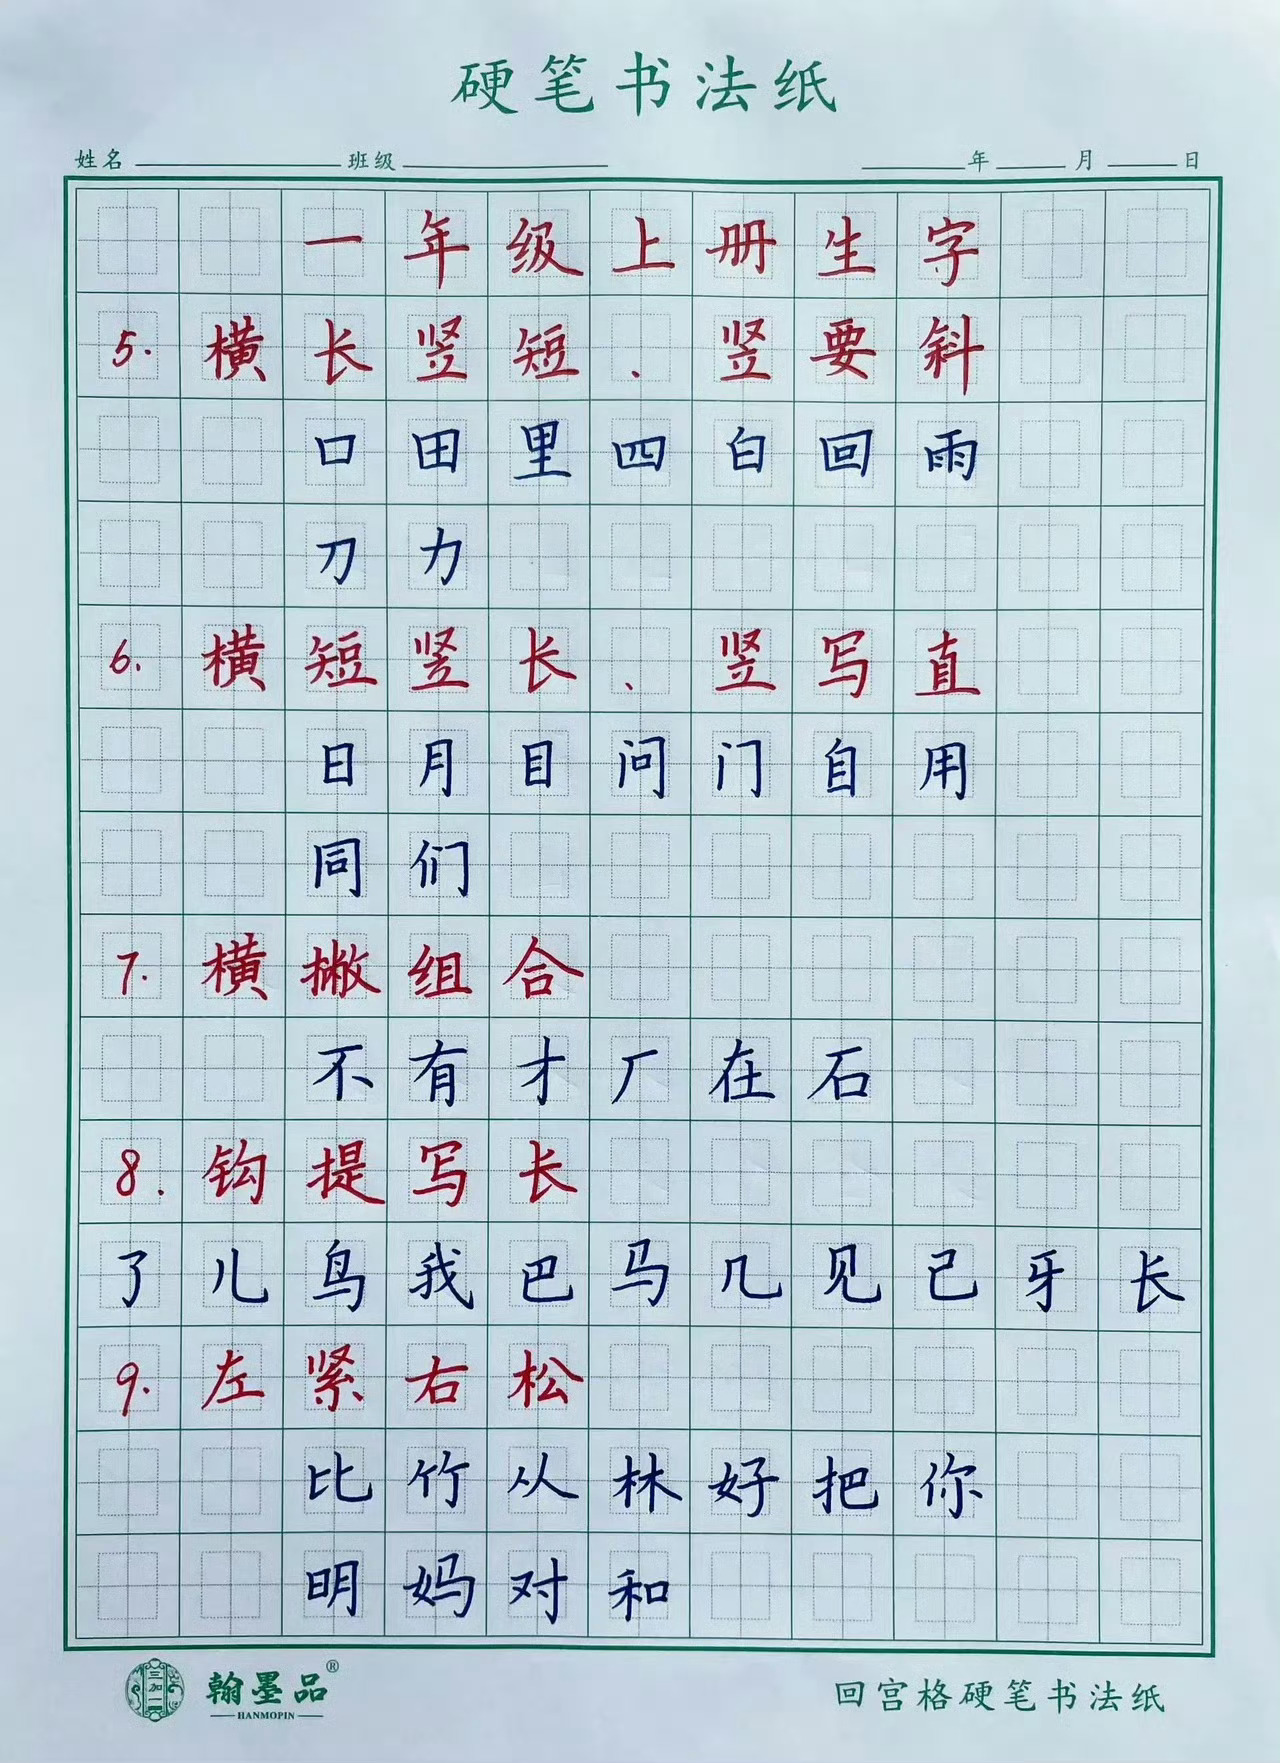 硬笔书法纸
姓名 班级 年 月 日
一年级上册生字
5. 横长竖短、竖要斜
口田里四白回雨
刀力
6. 横短竖长、竖写直
日月目问门自用
同们
7. 横撇组合
不有才厂在石
8. 钩提写长
了儿鸟我巴马几见己牙长
9. 左紧右松
比竹从林好把你
明妈对和
三加一 翰墨品®
HANMOPIN
回宫格硬笔书法纸